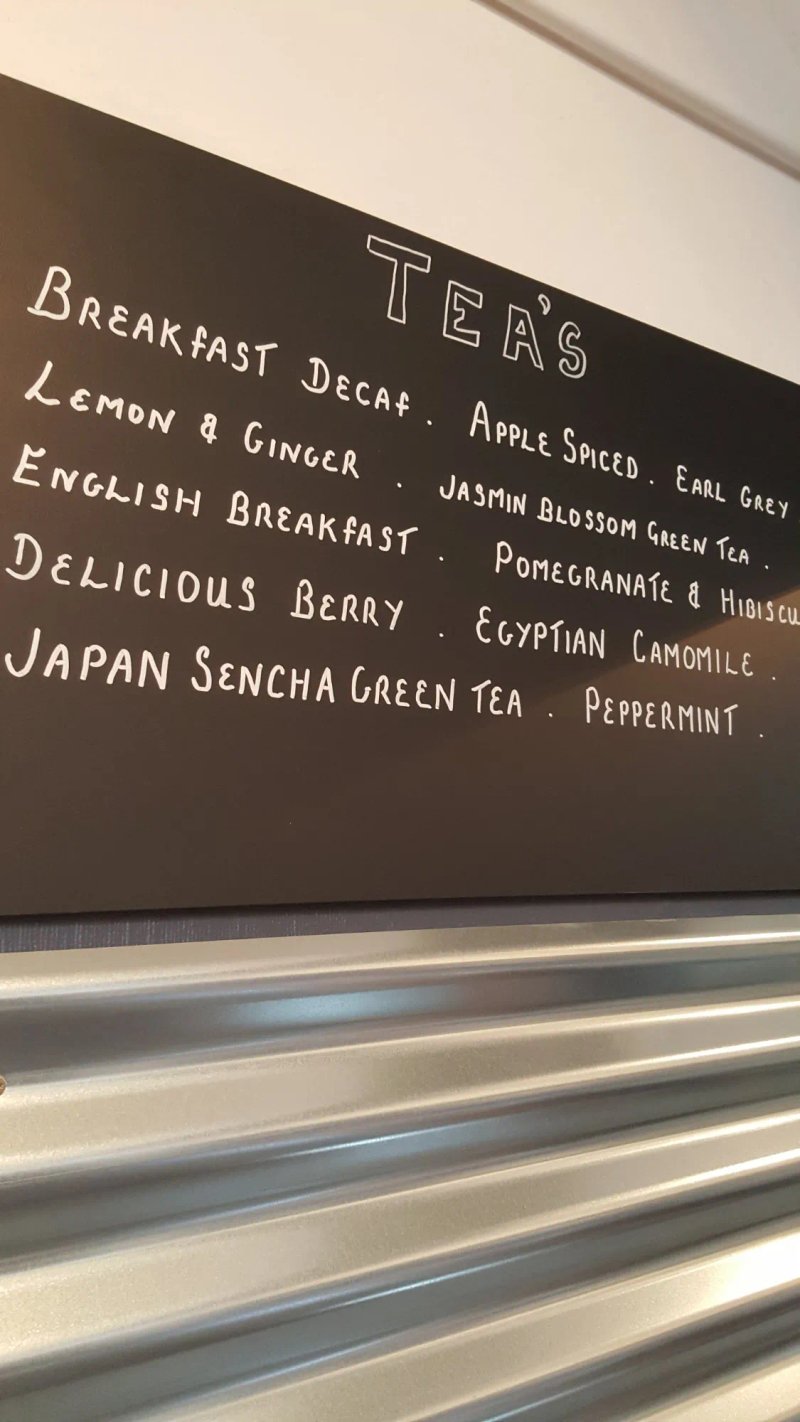 TEA'S
BREAKFAST DECAF. APPLE SPICED. EARL GREY
LEMON & GINGER. JASMIN BLOSSOM GREEN TEA.
ENGLISH BREAKFAST. POMEGRANATE & HIBISCU
DELICIOUS BERRY. EGYPTIAN CAMOMILE.
JAPAN SENCHA GREEN TEA. PEPPERMINT.